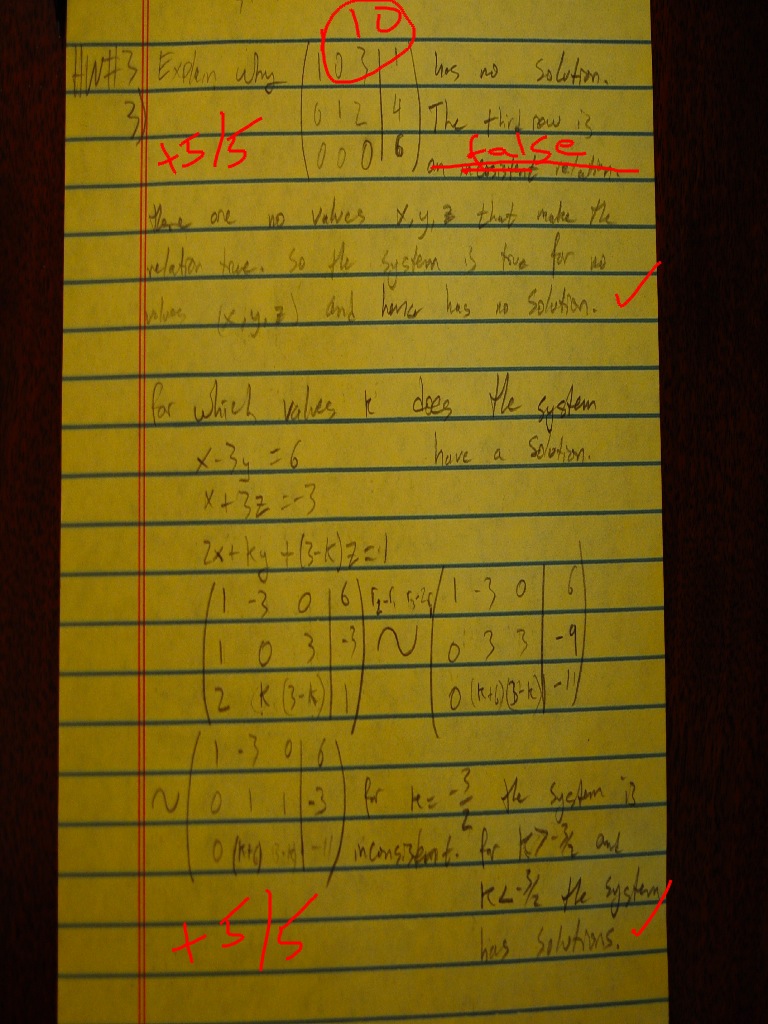 10
HW#3 Explain why (1 0 3 | 1) has no solution.
3) (0 1 2 | 4) The third row is
+5/5 (0 0 0 | 6) false
an inconsistent relation.
there are no values x, y, z that make the
relation true. So the system is true for no
values (x, y, z) and hence has no solution. ✓
for which values k does the system
x-3y = 6 have a solution.
x+3z = -3
2x+ky+(3-k)z=1
(1 -3 0 | 6) r2-r1 r3-2r1 (1 -3 0 | 6)
(1 0 3 | -3) ~ (0 3 3 | -9)
(2 k (3-k) | 1) (0 (k+6) (3-k) | -11)
(1 -3 0 | 6)
~ (0 1 1 | -3) for k = -3/2 the system is
(0 (k+6) 3-k | -11) inconsistent. for k>-3/2 and
k<-3/2 the system
+5/5 has solutions. ✓